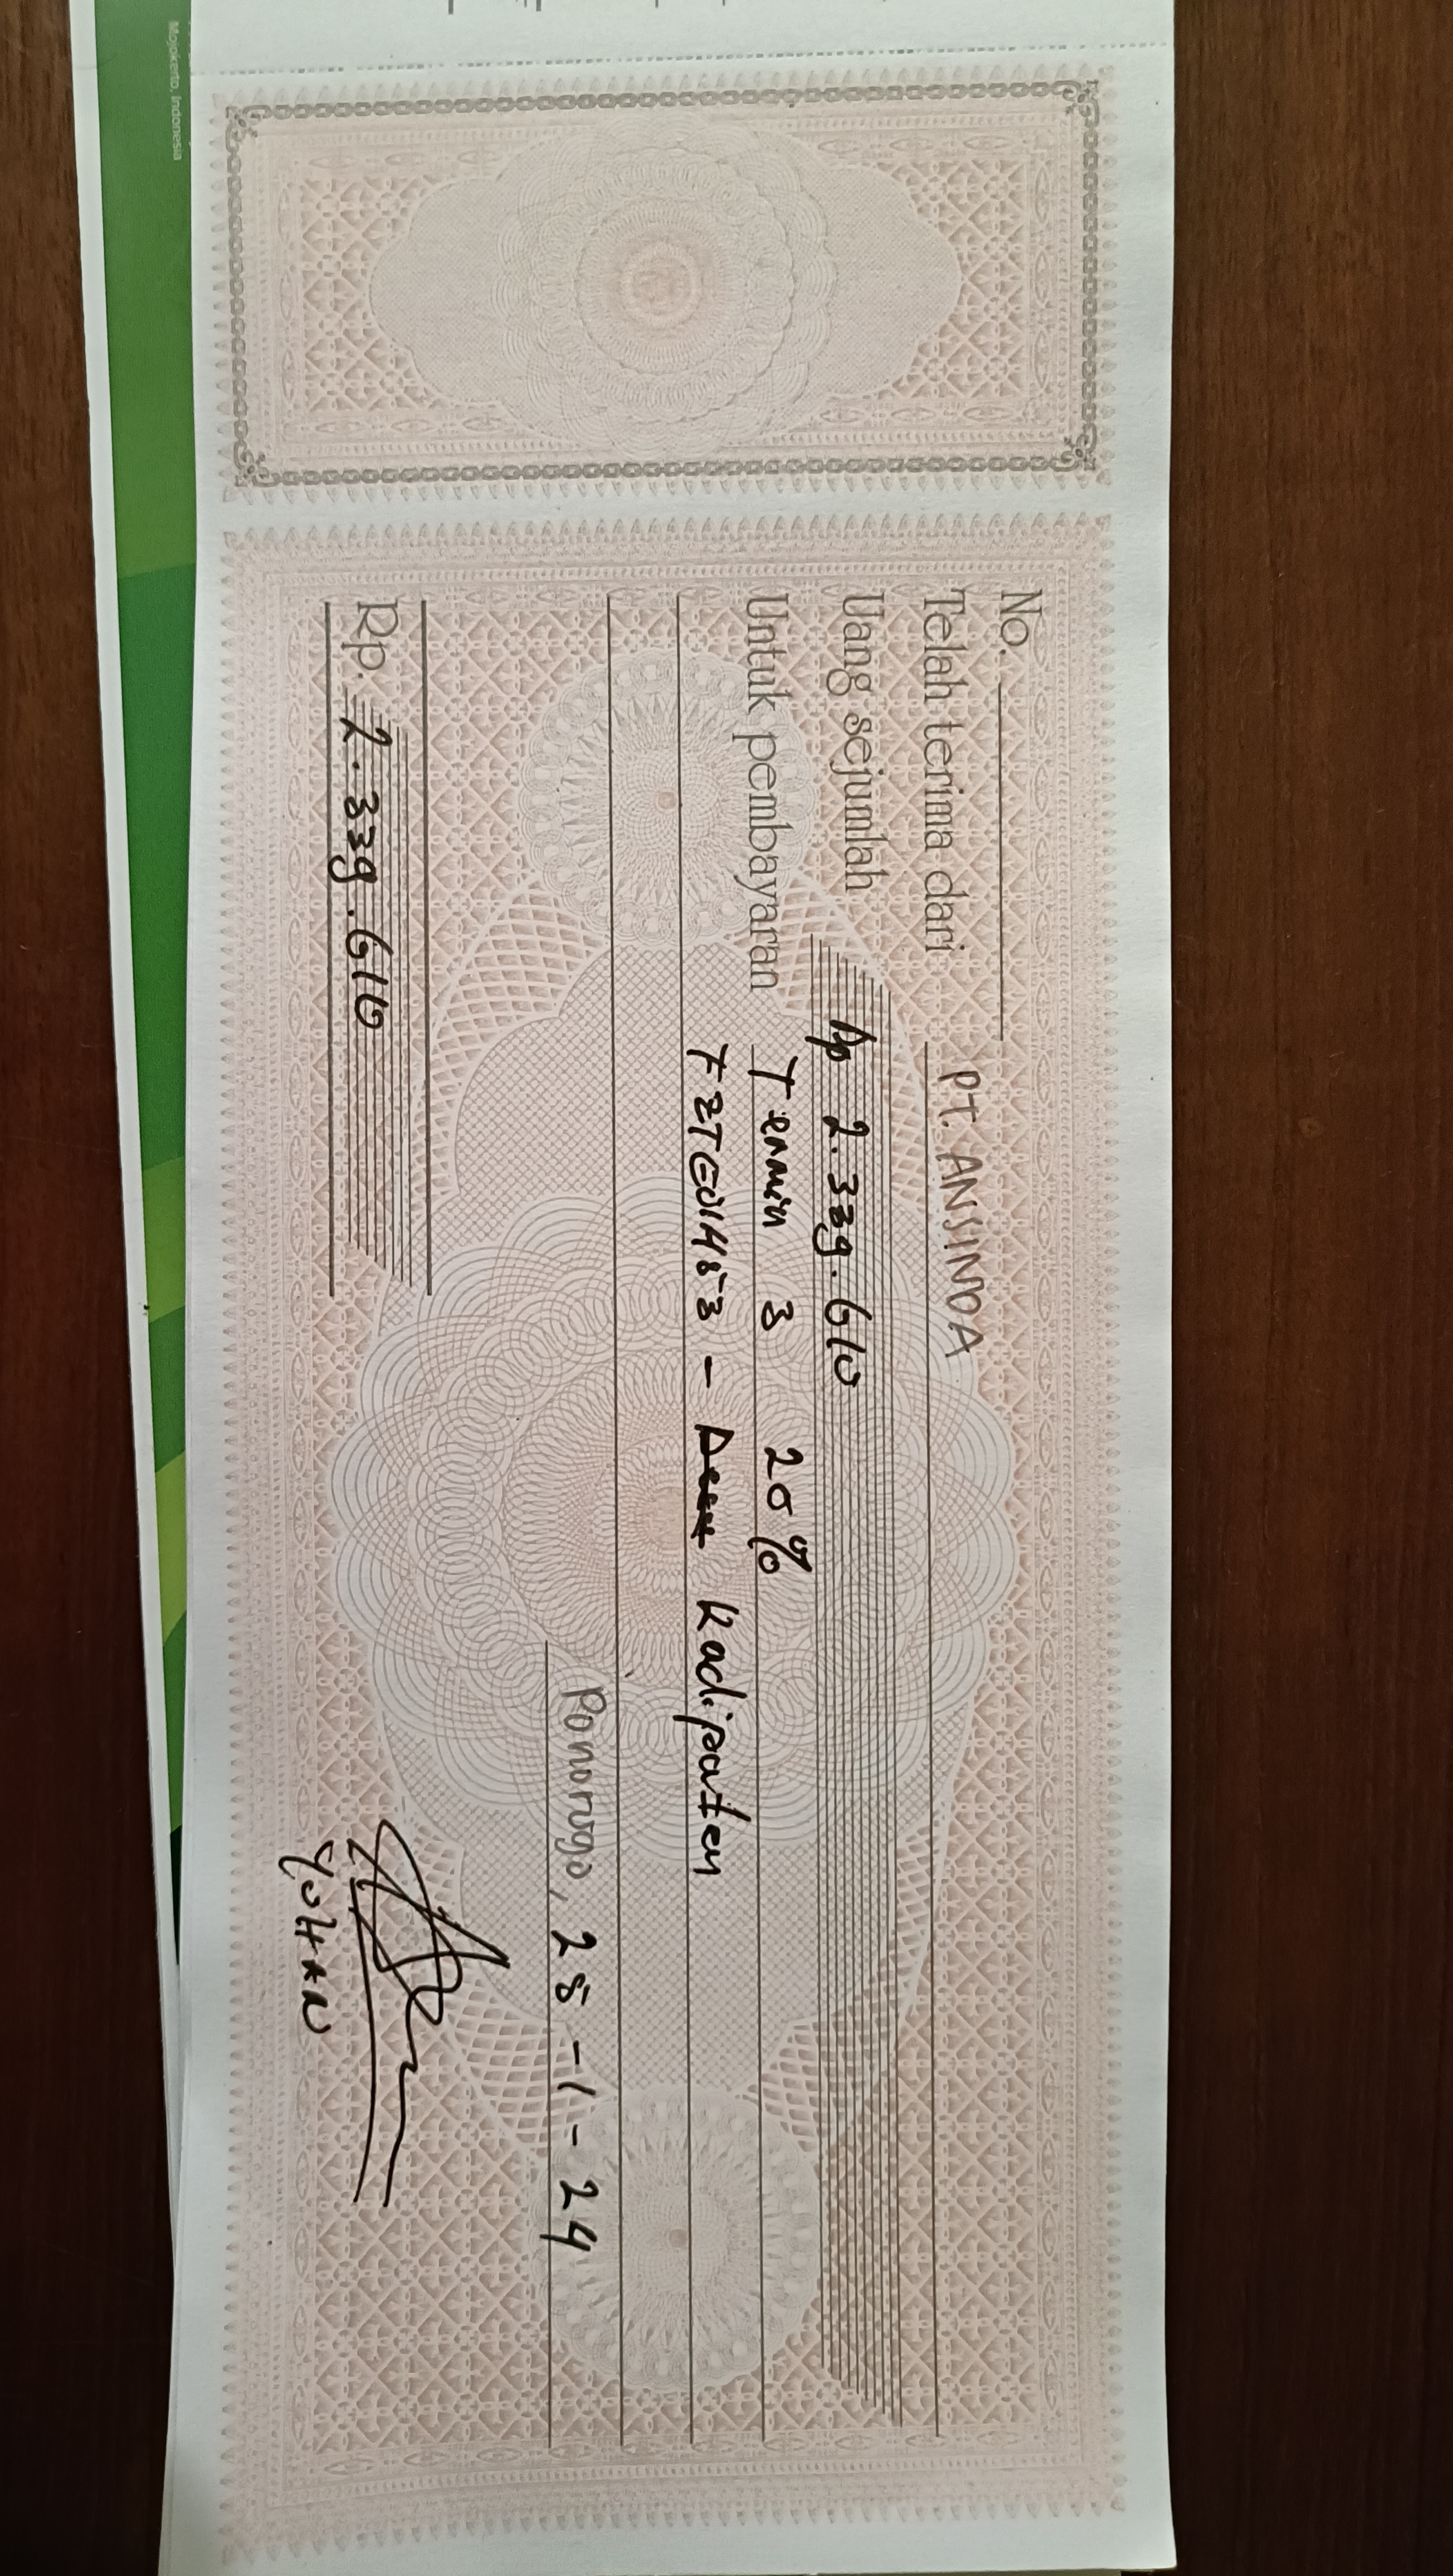 No.
Telah terima dari PT. ANSINDA
Uang sejumlah Rp 2.339.610
Untuk pembayaran Termin 3 20%
FZTE01453 - Kadipaten
Ponorogo, 25 - 1 - 24
Rp. 2.339.610
YUHAN
Mojokerto, Indonesia